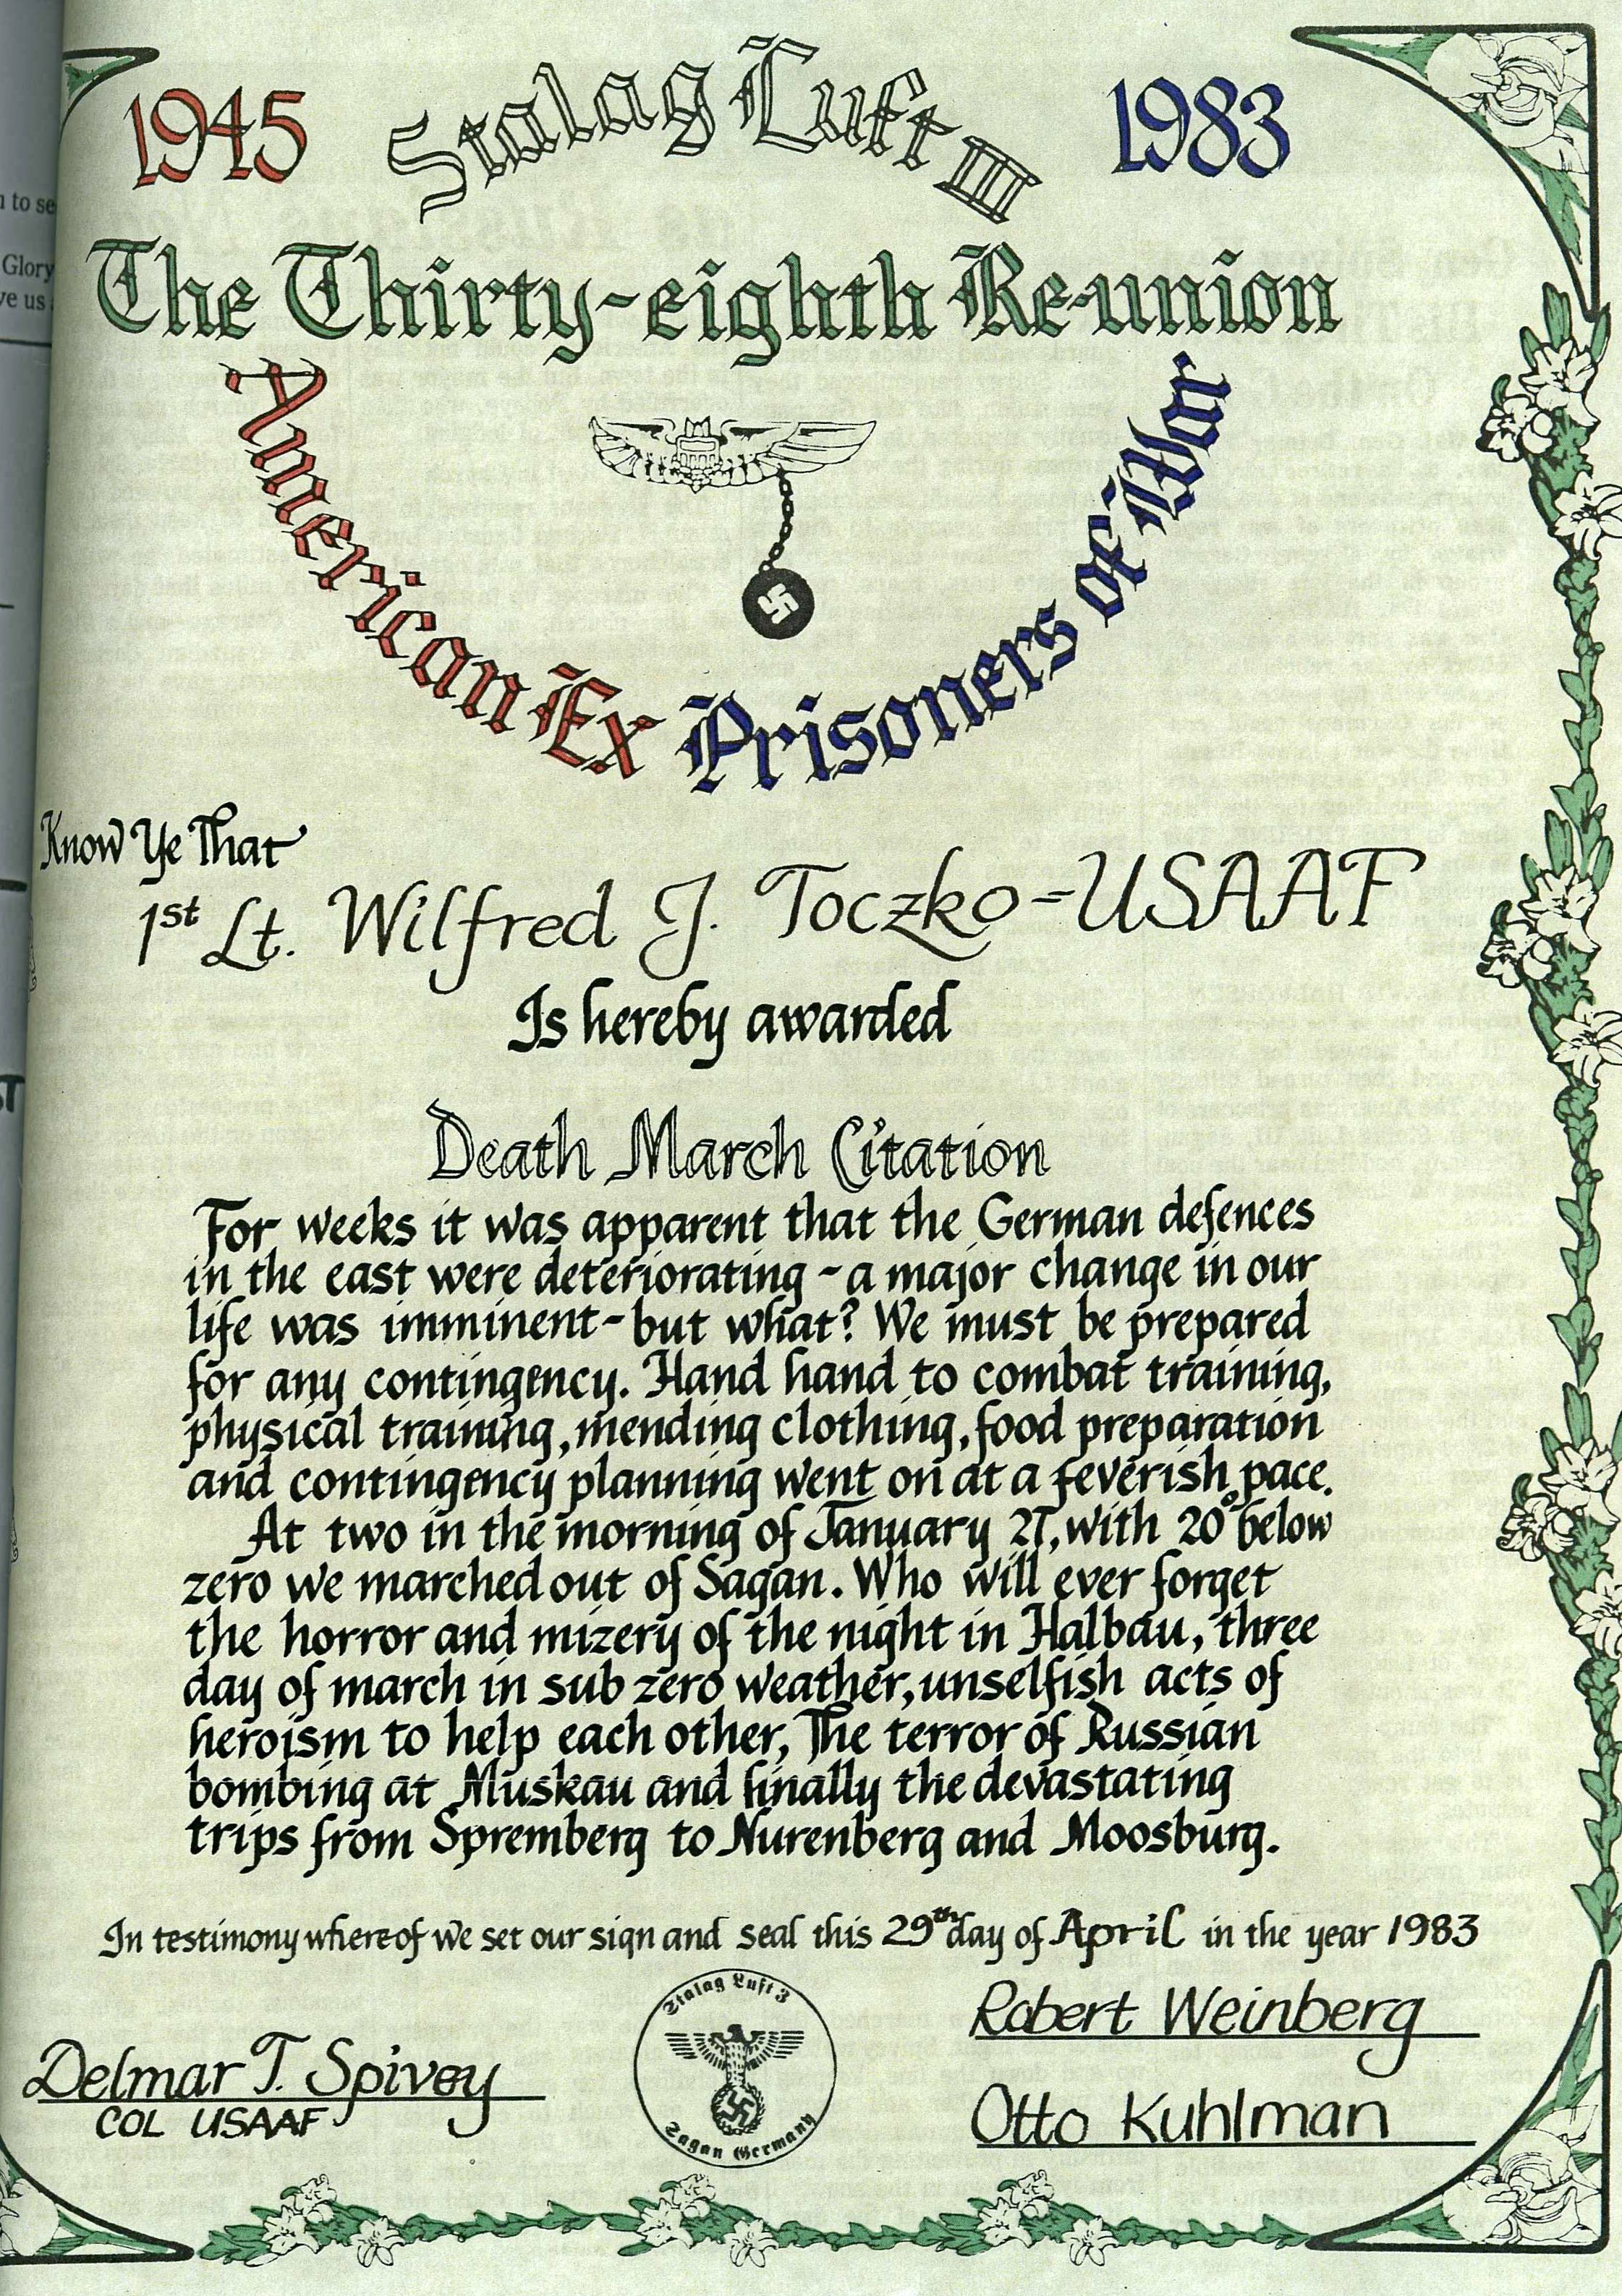 1945 Stalag Luft III 1983
n to se
Glory
ve us
The Thirty-eighth Re-union
American Ex Prisoners of War
Know Ye That
1st Lt. Wilfred J. Toczko=USAAF
Is hereby awarded
Death March Citation
For weeks it was apparent that the German defences
in the east were deteriorating - a major change in our
life was imminent - but what? We must be prepared
for any contingency. Hand hand to combat training,
physical training, mending clothing, food preparation
and contingency planning went on at a feverish pace.
At two in the morning of January 27, with 20° below
zero we marched out of Sagan. Who will ever forget
the horror and mizery of the night in Halbau, three
day of march in sub zero weather, unselfish acts of
heroism to help each other, The terror of Russian
bombing at Muskau and finally the devastating
trips from Spremberg to Nurenberg and Moosburg.
In testimony where-of we set our sign and seal this 29th day of April in the year 1983
Stalag Luft 3
Sagan Germany
Robert Weinberg
Delmar T. Spivey
COL USAAF
Otto Kuhlman